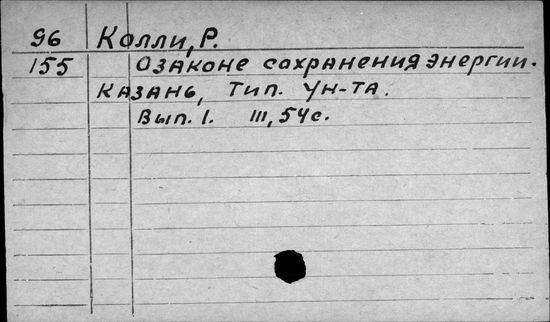 96 Колли, Р.
155 О законе сохранения энергии.
Казань, Тип. Ун-та.
Вып. 1. III, 54 с.